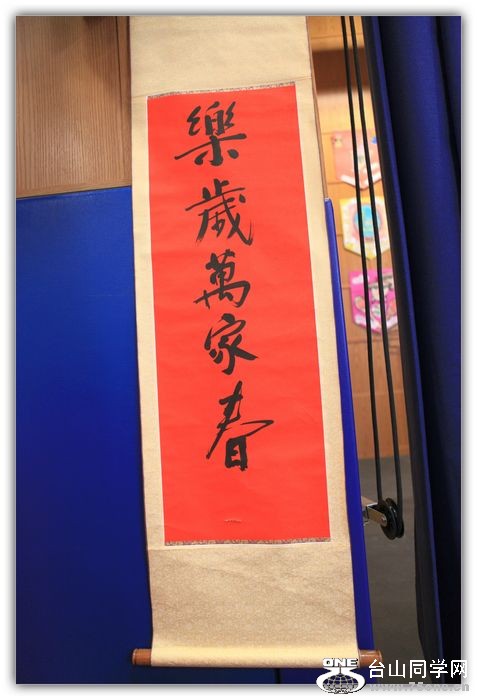 樂歲萬家春
ONE
台山同学网